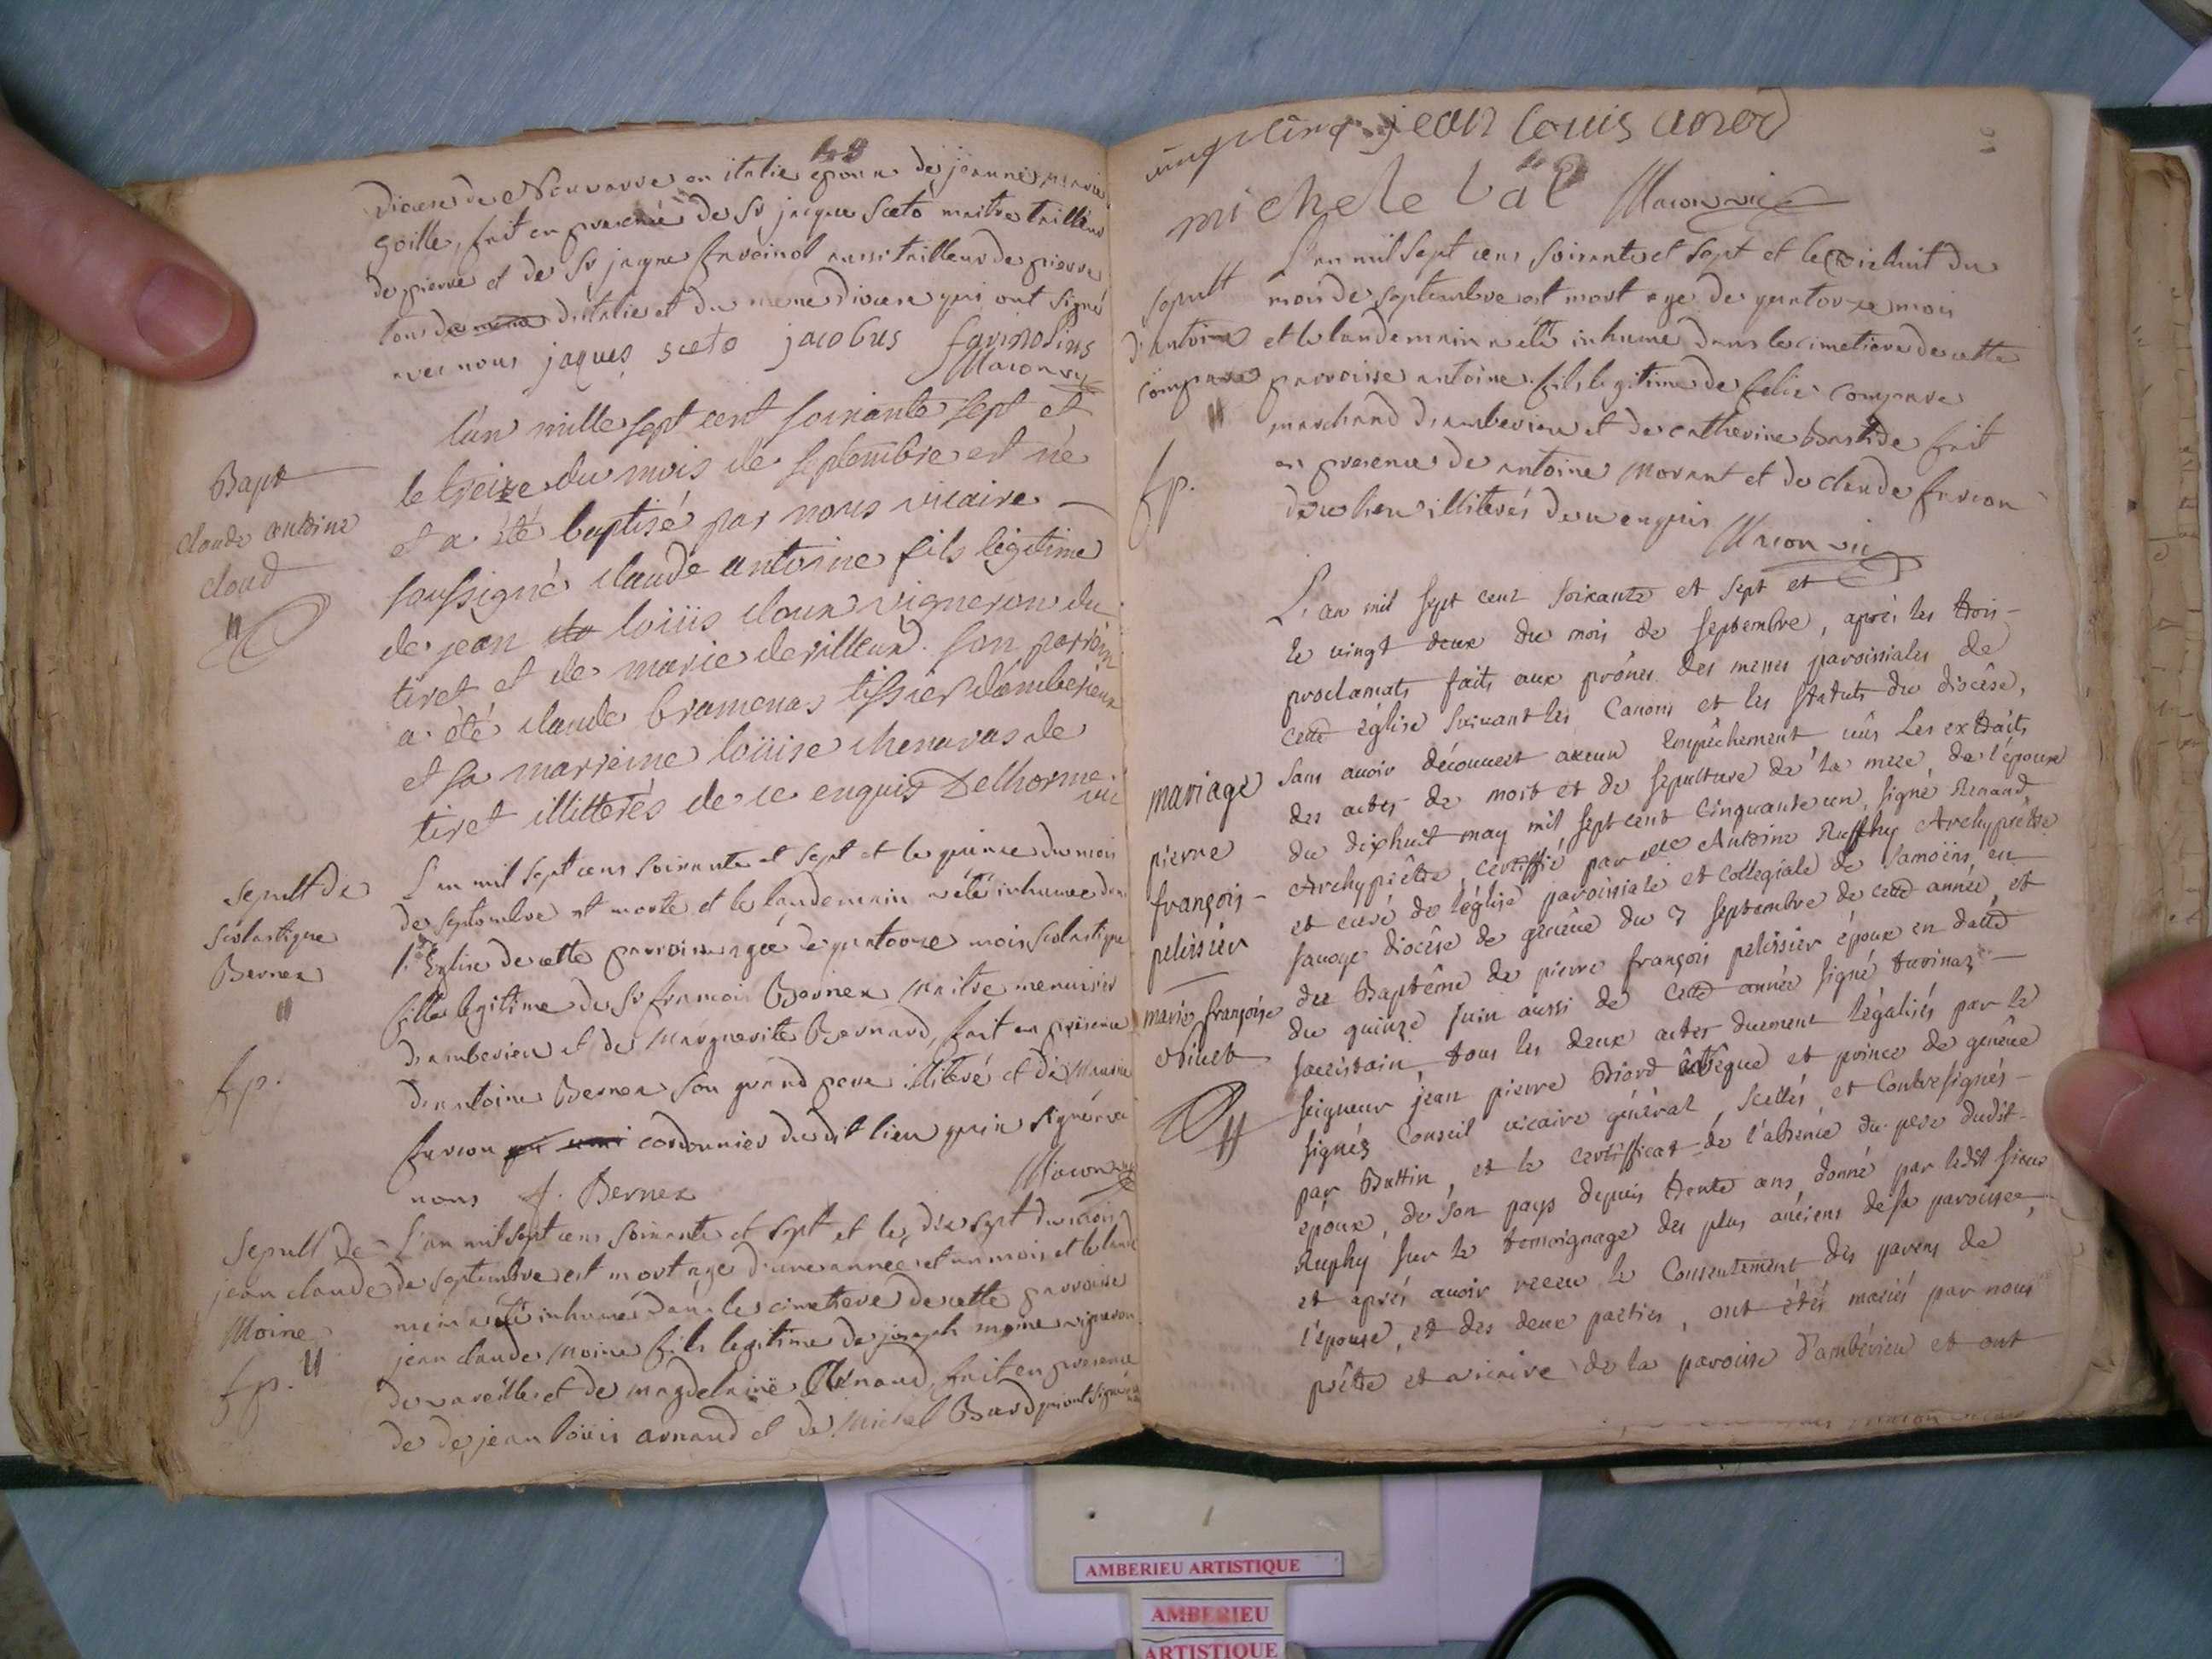 diocese de Nouvarre en italie epoux de jeanne marie
goille, fait en presence de Sr jacque Sceto maitre tailleur
de pierre et de Sr jaque favinol aussi tailleur de pierre
tous de meme d'italie et du meme diocese qui ont signé
avec nous jaques sceto jacobus favinolius
Macon vic
Bapt
claude antoine
cloud
l'an mille sept cent soixante sept et
le treize du mois de septembre est né
et a été baptisé par nous vicaire
soussigné claude antoine fils légitime
de jean de loüis cloux vigneron du
tiret et de marie derilleux. son parrein
a été claude bramenas tissier d'amberieux
et sa marreine loüise chenavas de
tiret illitterés de ce enquis Delhorme
vic
sepult de
scolastique
Bernex
fp.
L'an mil sept cens soixante et sept et le quinze du mois
de septembre est morte et le landemain a été inhumee dans
l'Eglise de cette parroisse agée de quatorze mois scolastique
fille legitime de Sr francois Bernex maitre menuisier
d'amberieu et de Marguerite Bernard, fait en presence
d'antoine Bernex son grand pere illiteré et de
farcon qui cordonnier du dit lieu qui a signé avec
nous f. Bernex Macon vic
sepult de
jean claude
Moine
fp.
L'an mil sept cens soixante et sept et le dix sept du mois
de septembre est mort age d'une année et un mois et le lande
main a été inhumé dans le cimetiere de cette parroisse
jean claude moine fils legitime de joseph moine vigneron
de vareille et de magdelaine Renaud, fait en presence
de de jean loüis arnaud et de Michel Bard qui ont signé
jean louis arnod
michele bal Macon vic
sepult
d'antoine
compare
fp.
L'an mil sept cens soixante et sept et le dixhuit du
mois de septembre est mort age de quatorze mois
et le landemain a été inhumé dans le cimetiere de cette
parroisse antoine fils legitime de felix compare
marchand d'amberieu et de catherine Bastide fait
en presence de antoine Morant et de claude farcon
de ce lieu illiterés de ce enquis
Macon vic
mariage
pierre
françois
pelissier
marie françoise
Ninet
L'an mil sept cent soixante et sept et
le vingt deux du mois de septembre, aprés les trois
proclamats faits aux prônes des messes paroissiales de
cette église suivant les Canons et les statuts du diocèse,
sans avoir découvert aucun Empêchement vûs Les extraits
des actes de mort et de sepulture de la mere de l'époux
du dixhuit may mil sept cent cinquante un, signé Renand
Archyprêtre, certiffié par Antoine Ruphy Archyprêtre
et curé de l'église paroissiale et collegiale de samoëns, en
savoye diocèse de genêve du 7 septembre de cette année, et
du Baptême de pierre françois pelissier époux en datte
du quinze juin aussi de cette année signé
sacristain, tous les deux actes duement légalisés par le
seigneur jean pierre Biord évêque et prince de genêve
signéz Conseil vicaire général, scellés et Contresignés
par Buttin, et le certifficat de l'absence du pere dudit
époux, de son pays depuis trente ans, donné par ledit sieur
Ruphy sur le temoignage des plus anciens de sa paroisse,
et aprés avoir receu le Consentement des parens de
l'épouse, et des deux parties, ont étés mariés par nous
prêtre et vicaire de la paroisse d'ambérieu et ont
AMBERIEU ARTISTIQUE
AMBERIEU
ARTISTIQUE